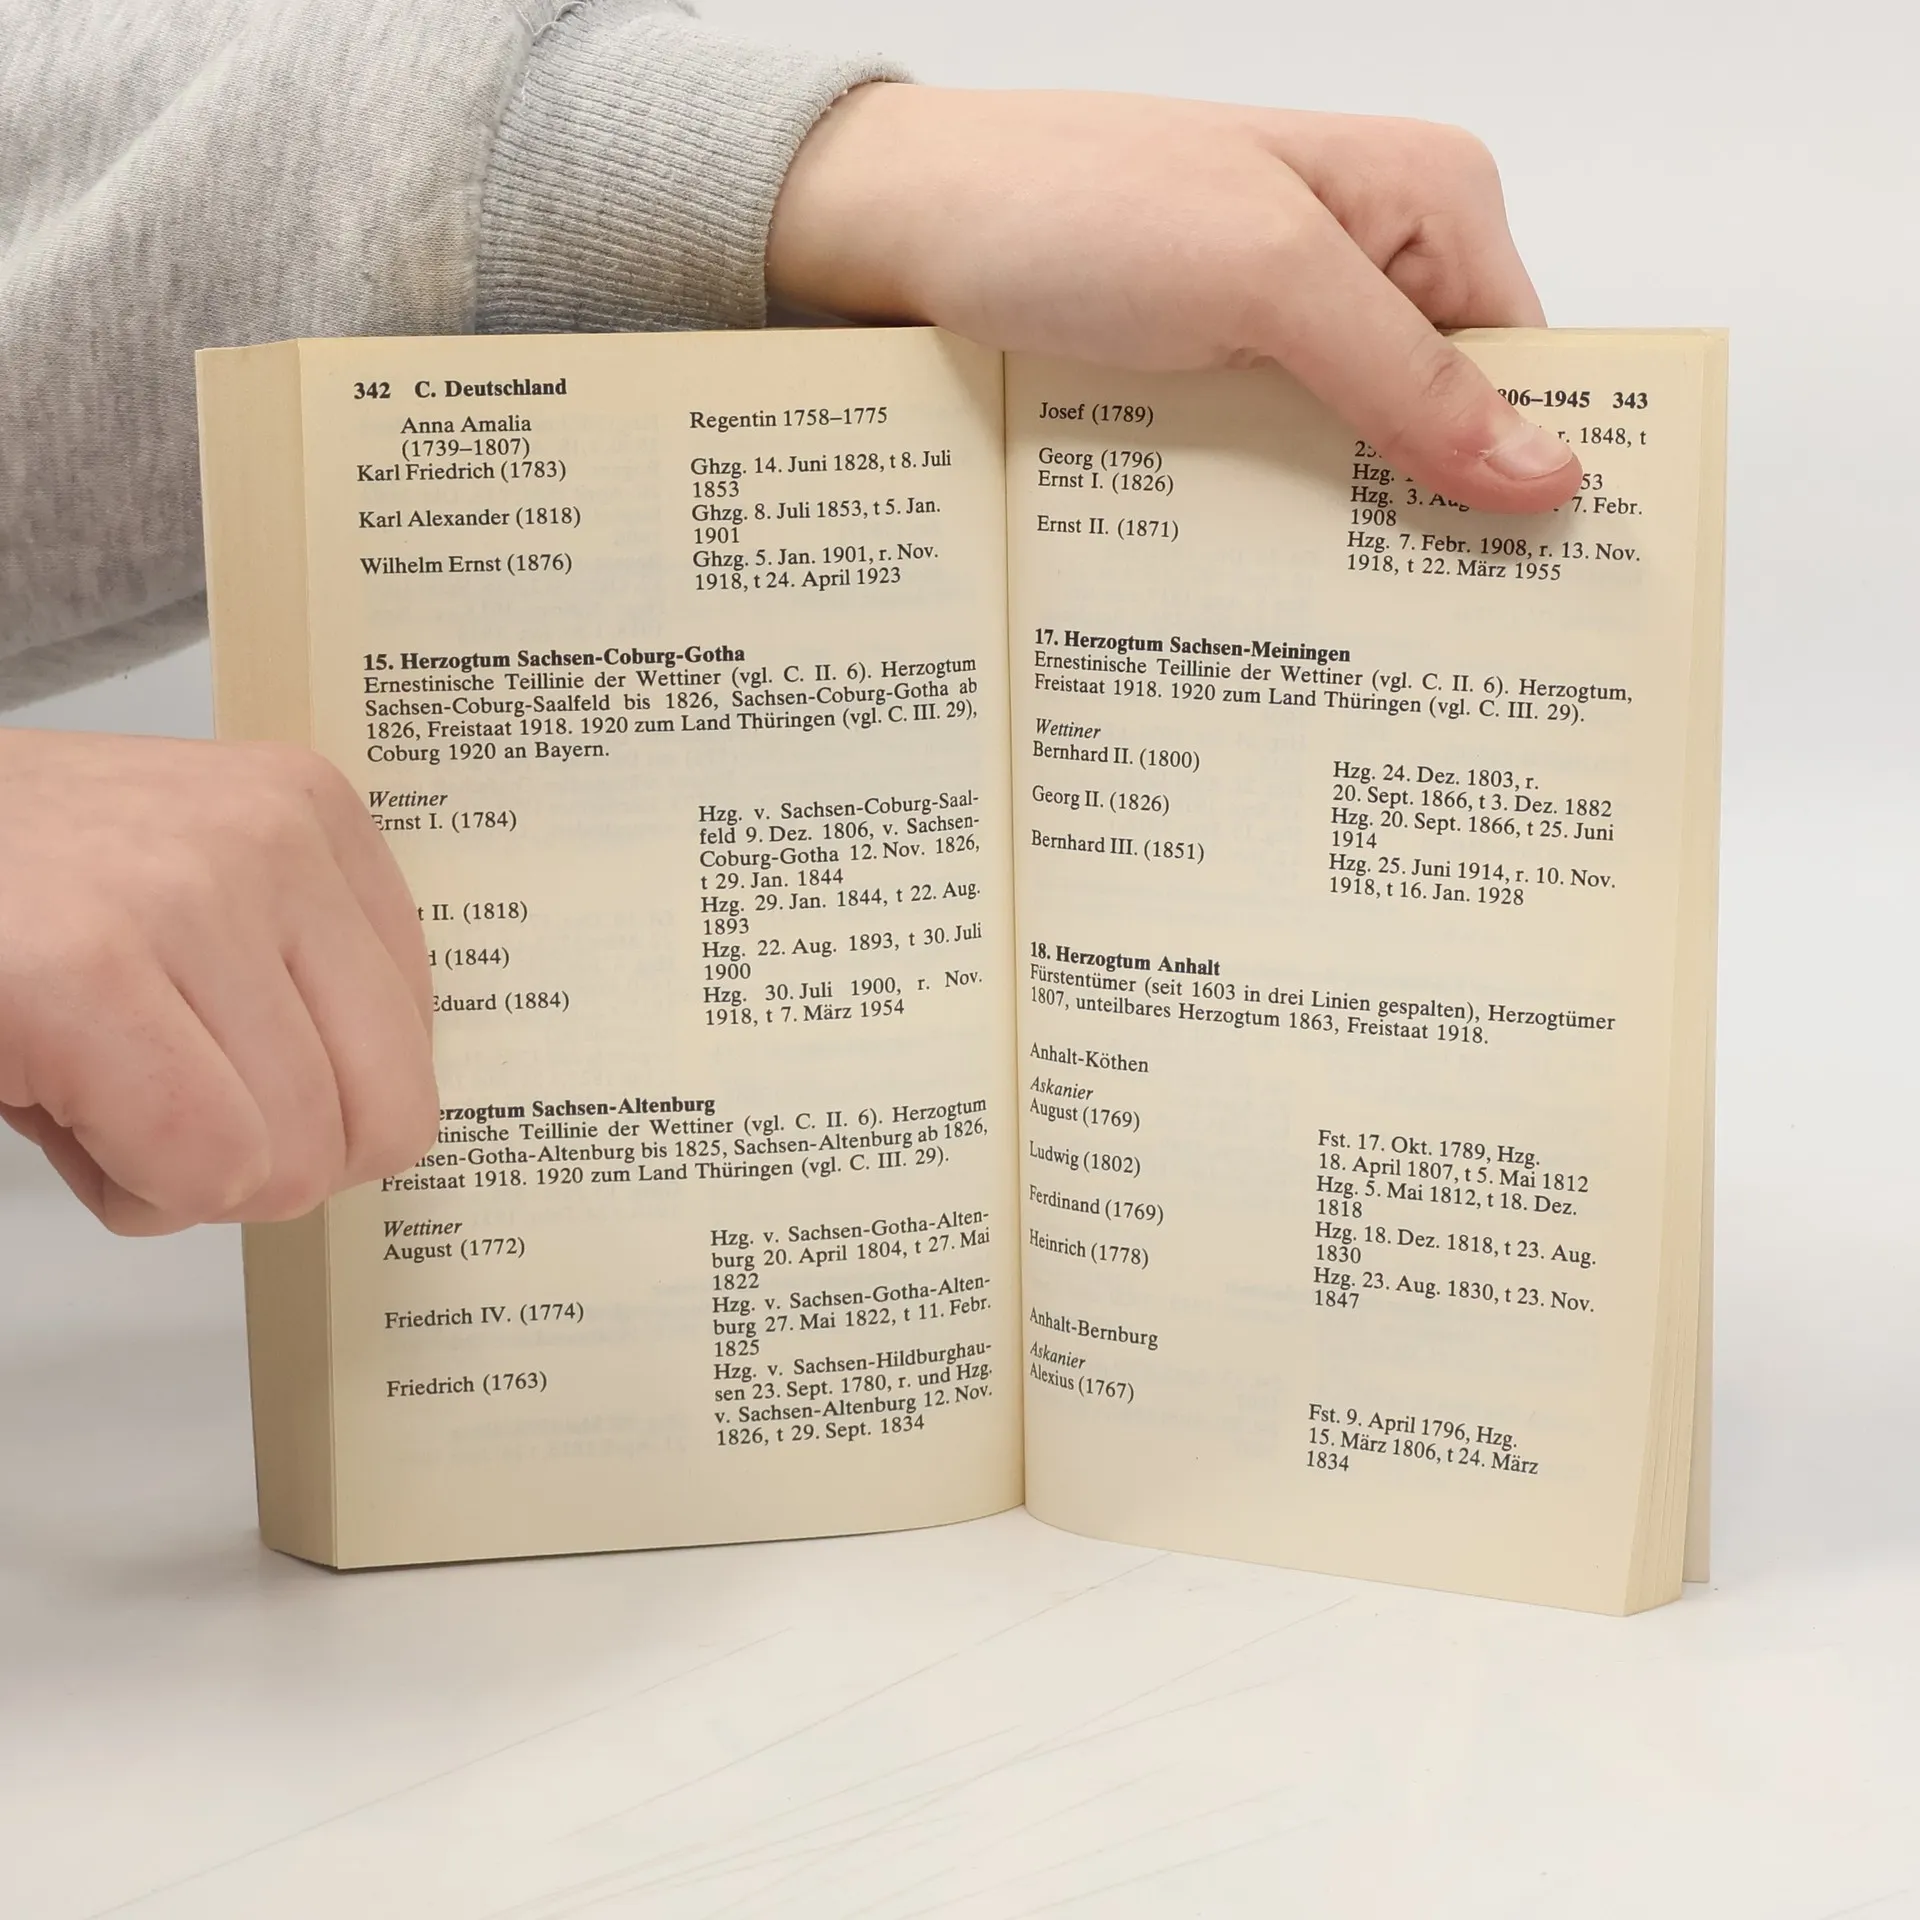 342 C. Deutschland
Anna Amalia Regentin 1758–1775
(1739–1807)
Karl Friedrich (1783) Ghzg. 14. Juni 1828, t 8. Juli
1853
Karl Alexander (1818) Ghzg. 8. Juli 1853, t 5. Jan.
1901
Wilhelm Ernst (1876) Ghzg. 5. Jan. 1901, r. Nov.
1918, t 24. April 1923
15. Herzogtum Sachsen-Coburg-Gotha
Ernestinische Teillinie der Wettiner (vgl. C. II. 6). Herzogtum
Sachsen-Coburg-Saalfeld bis 1826, Sachsen-Coburg-Gotha ab
1826, Freistaat 1918. 1920 zum Land Thüringen (vgl. C. III. 29),
Coburg 1920 an Bayern.
Wettiner
Ernst I. (1784) Hzg. v. Sachsen-Coburg-Saal-
feld 9. Dez. 1806, v. Sachsen-
Coburg-Gotha 12. Nov. 1826,
t 29. Jan. 1844
II. (1818) Hzg. 29. Jan. 1844, t 22. Aug.
1893
(1844) Hzg. 22. Aug. 1893, t 30. Juli
1900
Eduard (1884) Hzg. 30. Juli 1900, r. Nov.
1918, t 7. März 1954
erzogtum Sachsen-Altenburg
tinische Teillinie der Wettiner (vgl. C. II. 6). Herzogtum
sen-Gotha-Altenburg bis 1825, Sachsen-Altenburg ab 1826,
Freistaat 1918. 1920 zum Land Thüringen (vgl. C. III. 29).
Wettiner
August (1772) Hzg. v. Sachsen-Gotha-Alten-
burg 20. April 1804, t 27. Mai
1822
Friedrich IV. (1774) Hzg. v. Sachsen-Gotha-Alten-
burg 27. Mai 1822, t 11. Febr.
1825
Friedrich (1763) Hzg. v. Sachsen-Hildburghau-
sen 23. Sept. 1780, r. und Hzg.
v. Sachsen-Altenburg 12. Nov.
1826, t 29. Sept. 1834
06–1945 343
Josef (1789) r. 1848, t
Georg (1796) Hzg. 53
Ernst I. (1826) Hzg. 3. 7. Febr.
1908
Ernst II. (1871) Hzg. 7. Febr. 1908, r. 13. Nov.
1918, t 22. März 1955
17. Herzogtum Sachsen-Meiningen
Ernestinische Teillinie der Wettiner (vgl. C. II. 6). Herzogtum,
Freistaat 1918. 1920 zum Land Thüringen (vgl. C. III. 29).
Wettiner
Bernhard II. (1800) Hzg. 24. Dez. 1803, r.
20. Sept. 1866, t 3. Dez. 1882
Georg II. (1826) Hzg. 20. Sept. 1866, t 25. Juni
1914
Bernhard III. (1851) Hzg. 25. Juni 1914, r. 10. Nov.
1918, t 16. Jan. 1928
18. Herzogtum Anhalt
Fürstentümer (seit 1603 in drei Linien gespalten), Herzogtümer
1807, unteilbares Herzogtum 1863, Freistaat 1918.
Anhalt-Köthen
Askanier
August (1769) Fst. 17. Okt. 1789, Hzg.
18. April 1807, t 5. Mai 1812
Ludwig (1802) Hzg. 5. Mai 1812, t 18. Dez.
1818
Ferdinand (1769) Hzg. 18. Dez. 1818, t 23. Aug.
1830
Heinrich (1778) Hzg. 23. Aug. 1830, t 23. Nov.
1847
Anhalt-Bernburg
Askanier
Alexius (1767) Fst. 9. April 1796, Hzg.
15. März 1806, t 24. März
1834